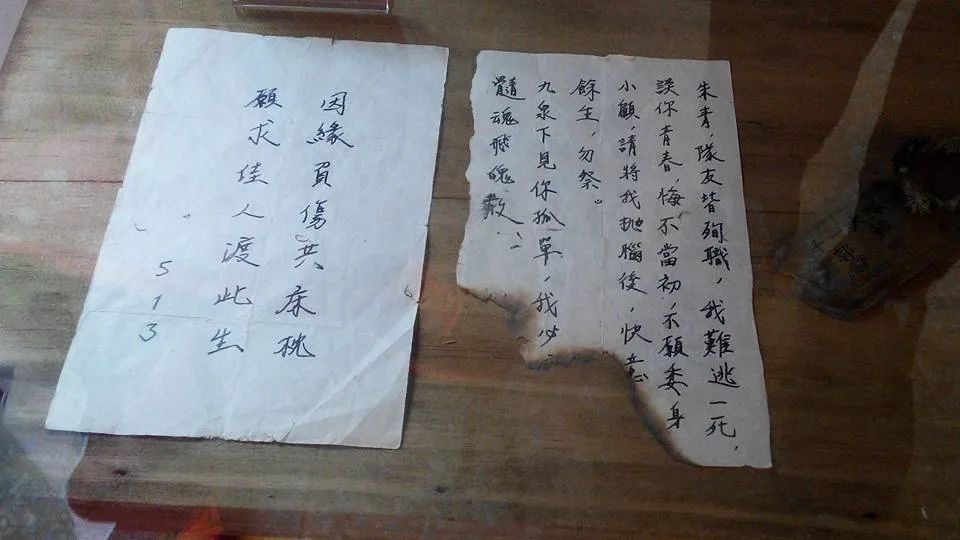 朱青，隊友皆殉職，我難逃一死，
誤你青春，悔不當初，不願委身
小顧，請將我拋腦後，快意
餘生，勿祭。
九泉下見你孤單，我必
髓魂飛魄散…
因緣負傷共床枕
願求佳人渡此生
513